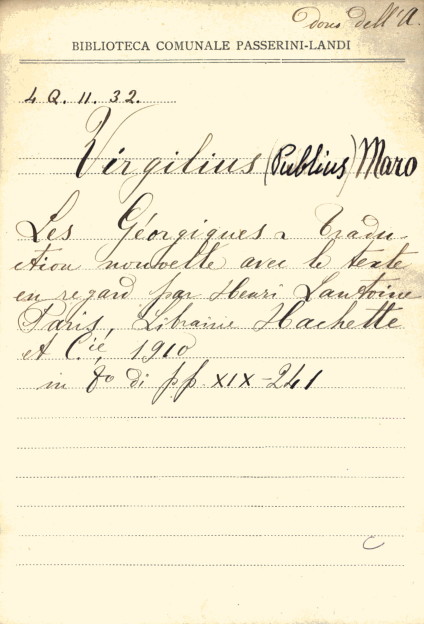 dono dell'A.
BIBLIOTECA COMUNALE PASSERINI-LANDI
4 Q. II. 32.
Virgilius (Publius) Maro
Les Géorgiques - Tradu-
ction nouvelle avec le texte
en regard par Henri Lantoine
Paris, Librairie Hachette
et C.ie, 1910
in 8º di pp. XIX-241
C